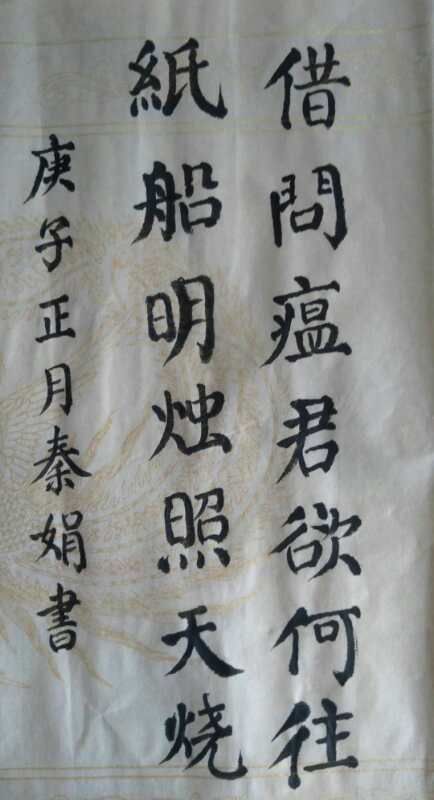 借問瘟君欲何往
紙船明烛照天烧
庚子正月秦娟書